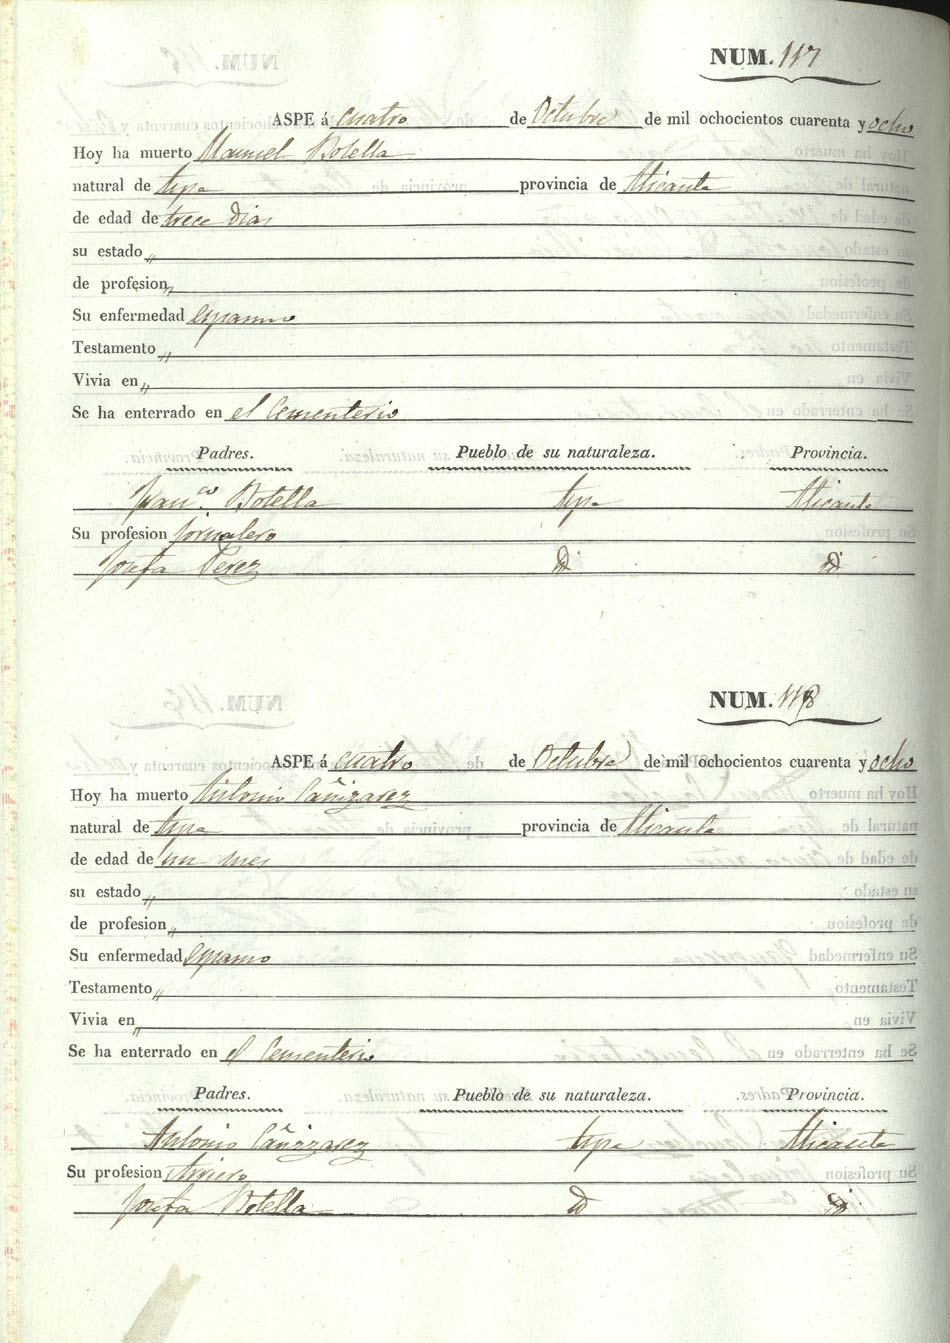 NUM. 117
ASPE á cuatro de Octubre de mil ochocientos cuarenta y ocho
Hoy ha muerto Manuel Botella
natural de Aspe provincia de Alicante
de edad de trece dias
su estado „
de profesion „
Su enfermedad espasmo
Testamento „
Vivia en „
Se ha enterrado en el Cementerio
Padres. Pueblo de su naturaleza. Provincia.
Franco. Botella Aspe Alicante
Su profesion Jornalero
Josefa Perez id id
NUM. 118
ASPE á cuatro de Octubre de mil ochocientos cuarenta y ocho
Hoy ha muerto Antonio Cañizarez
natural de Aspe provincia de Alicante
de edad de un mes
su estado „
de profesion „
Su enfermedad espasmo
Testamento „
Vivia en „
Se ha enterrado en el Cementerio
Padres. Pueblo de su naturaleza. Provincia.
Antonio Cañizarez Aspe Alicante
Su profesion Arriero
Josefa Botella id id